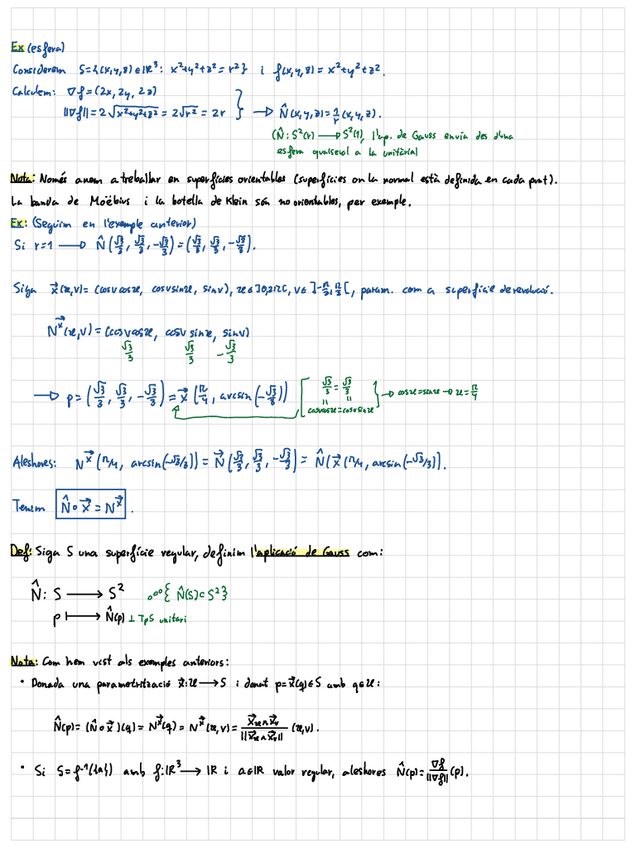 Ex (esfera)
Considerem S={(x,y,z)∈ℝ³: x²+y²+z²=r²} i f(x,y,z)=x²+y²+z².
Calculem: ∇f=(2x, 2y, 2z)
||∇f||=2√(x²+y²+z²)=2√r²=2r } → N̂(x,y,z)=1/r (x,y,z).
(N̂: S²(r) → S²(1), l'ap. de Gauss envia des d'una
esfera qualsevol a la unitària)
Nota: Només anem a treballar en superfícies orientables (superfícies on la normal està definida en cada punt).
La banda de Moëbius i la botella de Klein són no orientables, per exemple.
Ex: (Seguim en l'exemple anterior)
Si r=1 → N̂(√3/3, √3/3, -√3/3)=(√3/3, √3/3, -√3/3).
Siga x⃗(u,v)=(cosv cosu, cosv sinu, sinv), u∈]0,2π[, v∈]-π/2,π/2[, param. com a superfície de revolució.
N^x⃗(u,v)=(cosv cosu, cosv sinu, sinv)
√3/3 √3/3 -√3/3
→ p=(√3/3, √3/3, -√3/3)=x⃗(π/4, arcsin(-√3/3)) [ √3/3 = √3/3
" "
cosv cosu=cosv sinu } → cosu=sinu → u=π/4
Aleshores: N^x⃗(π/4, arcsin(-√3/3))=N⃗(√3/3, √3/3, -√3/3)=N̂(x⃗(π/4, arcsin(-√3/3)).
Tenim N̂∘x⃗=N^x⃗.
Def: Siga S una superfície regular, definim l'aplicació de Gauss com:
N̂: S → S² {N̂(S)⊂S²}
p ↦ N̂(p) ⊥ TpS unitari
Nota: Com hem vist als exemples anteriors:
• Donada una parametrització x⃗:U→S i donat p=x⃗(q)∈S amb q∈U:
N̂(p)=(N̂∘x⃗)(q)=N^x⃗(q)=N^x⃗(u,v)=(x⃗u∧x⃗v)/||x⃗u∧x⃗v|| (u,v).
• Si S=f⁻¹({a}) amb f:ℝ³→ℝ i a∈ℝ valor regular, aleshores N̂(p)=∇f/||∇f|| (p).